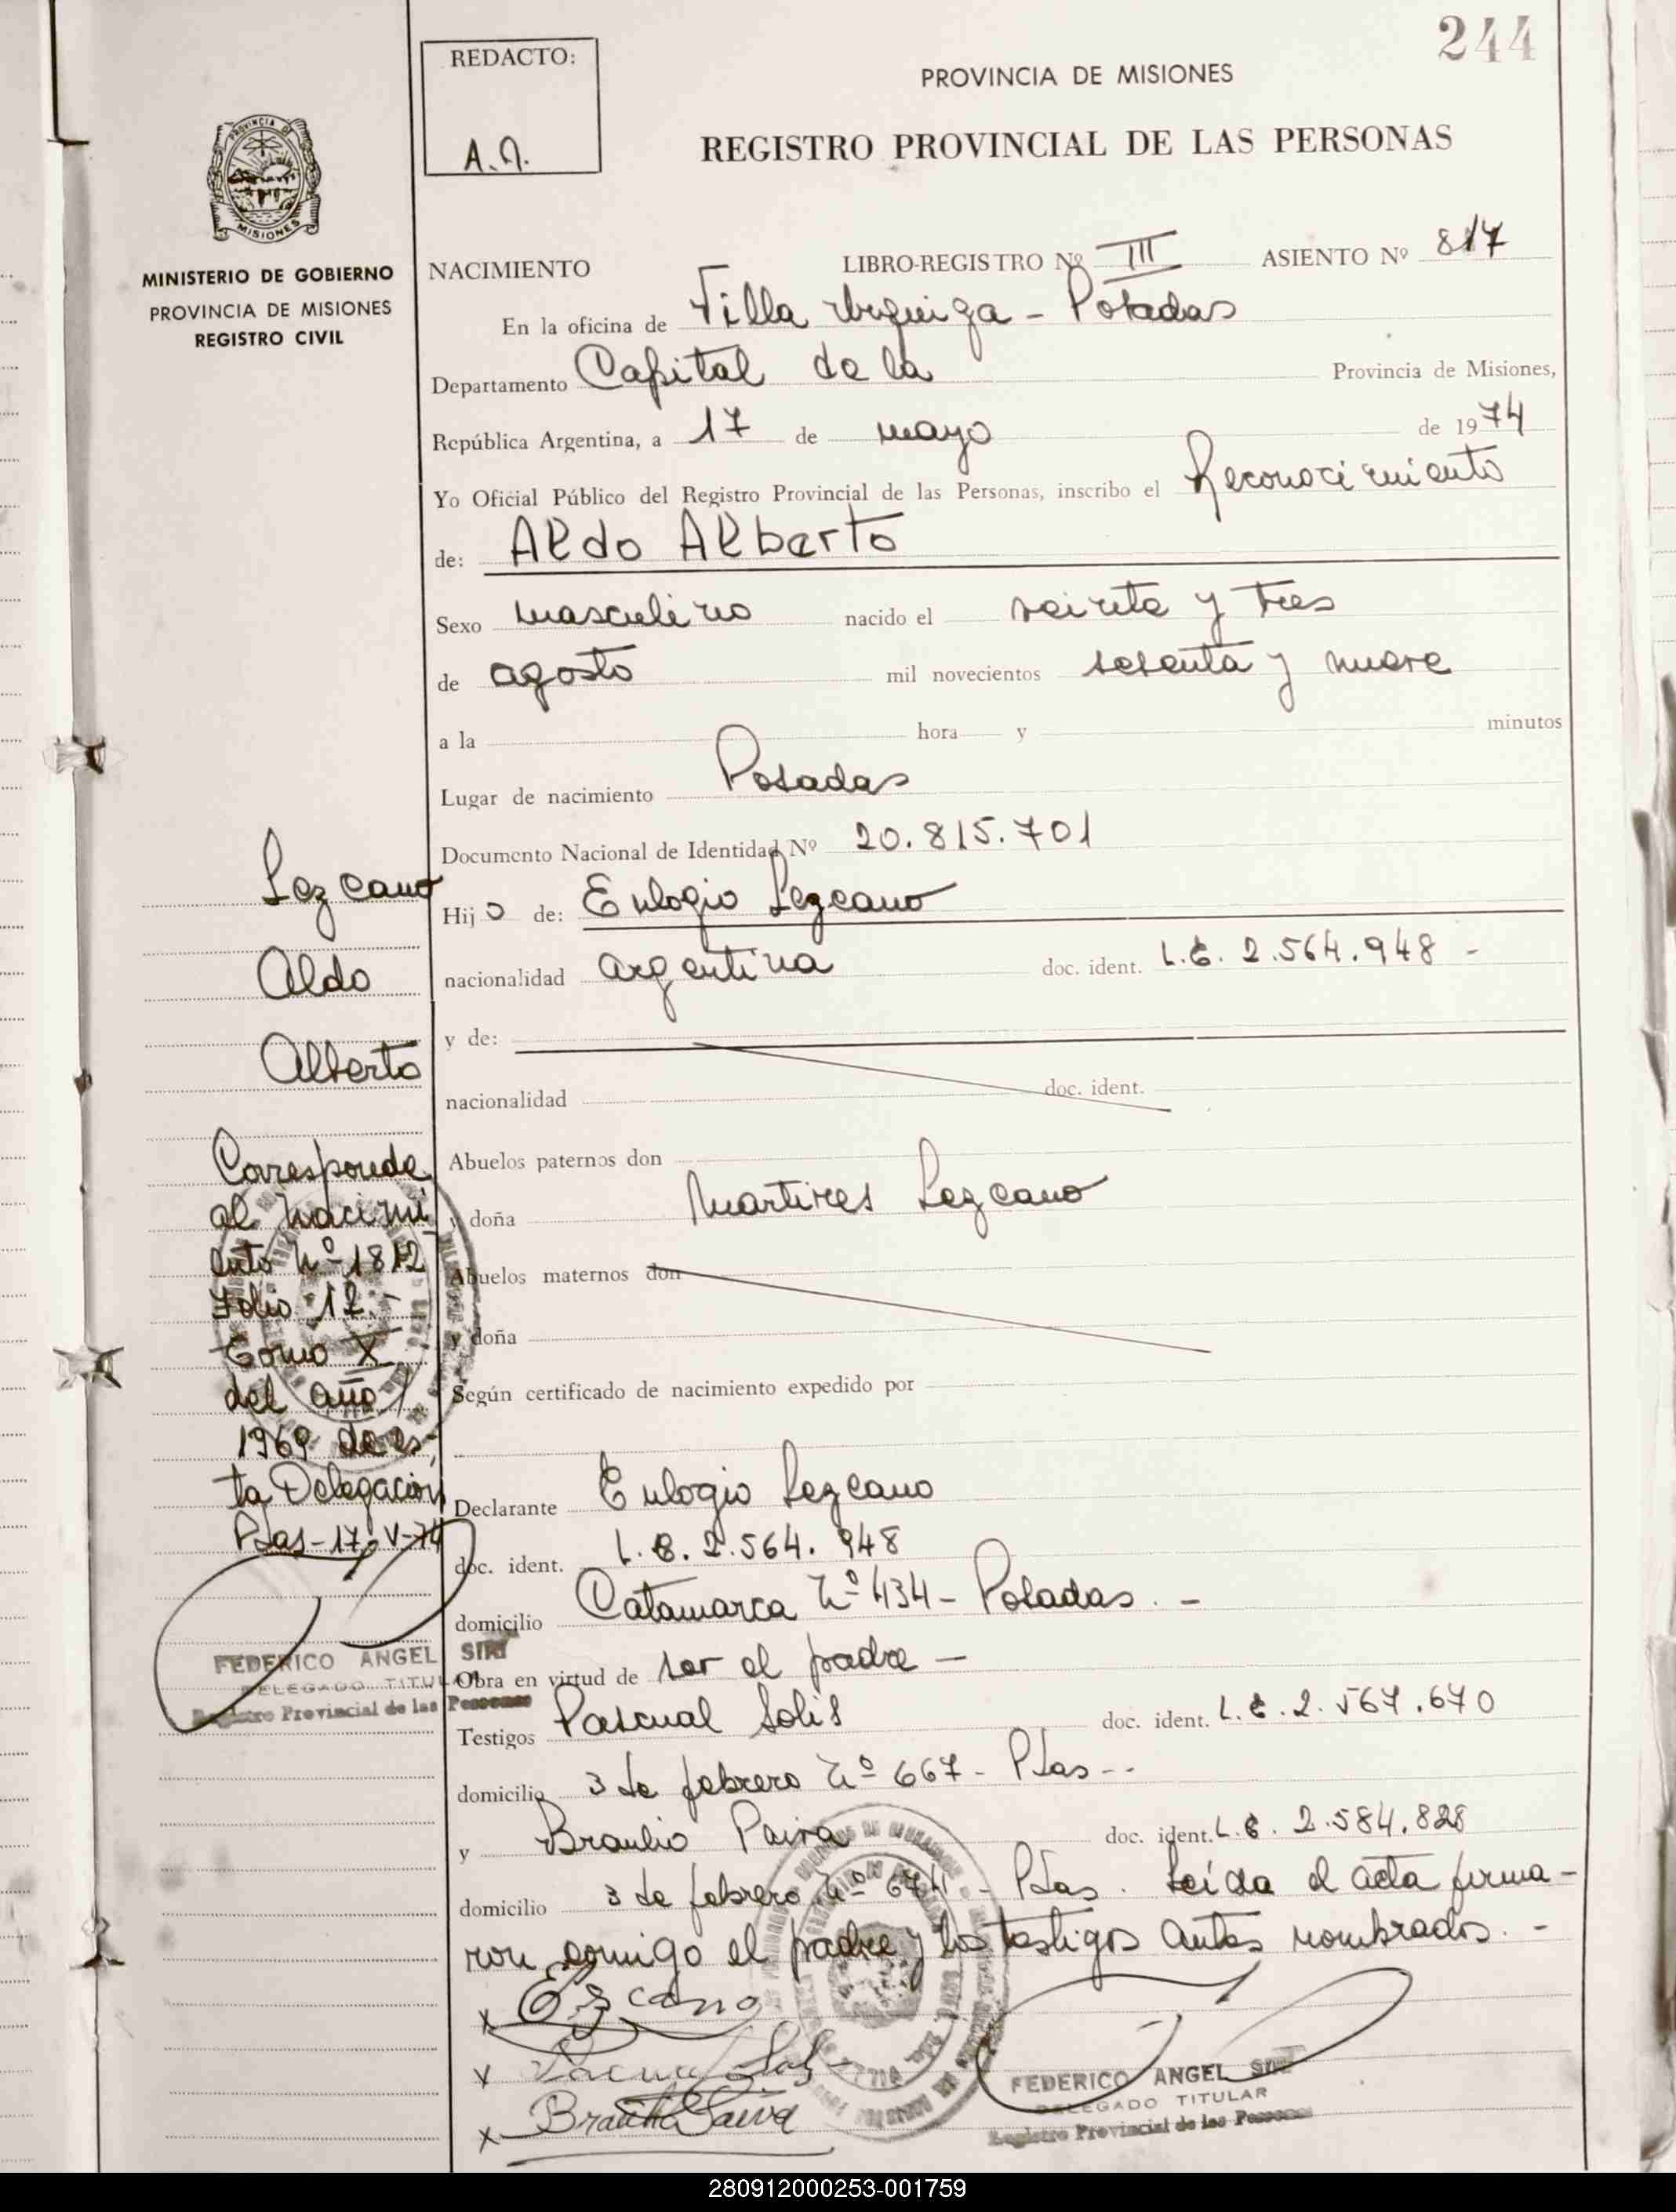 244
REDACTO:
A.Q.
PROVINCIA DE MISIONES
REGISTRO PROVINCIAL DE LAS PERSONAS
PROVINCIA DE
MISIONES
MINISTERIO DE GOBIERNO
PROVINCIA DE MISIONES
REGISTRO CIVIL
NACIMIENTO LIBRO-REGISTRO Nº III ASIENTO Nº 817
En la oficina de Villa Urquiza - Posadas
Departamento Capital de la Provincia de Misiones,
República Argentina, a 17 de mayo de 1974
Yo Oficial Público del Registro Provincial de las Personas, inscribo el Reconocimiento
de: Aldo Alberto
Sexo masculino nacido el veinte y tres
de agosto mil novecientos sesenta y nueve
a la hora y minutos
Lugar de nacimiento Posadas
Documento Nacional de Identidad Nº 20.815.701
Hijo de: Eulogio Lezcano
nacionalidad argentina doc. ident. L.E. 2.564.948 -
y de:
nacionalidad doc. ident.
Abuelos paternos don
y doña Martires Lezcano
Abuelos maternos don
y doña
Según certificado de nacimiento expedido por
Declarante Eulogio Lezcano
doc. ident. L.E. 2.564.948
domicilio Catamarca Nº 434 - Posadas. -
Obra en virtud de ser el padre -
Testigos Pascual Solis doc. ident. L.E. 2.567.670
domicilio 3 de febrero Nº 667 - Pdas --
y Braulio Paiva doc. ident. L.E. 2.584.828
domicilio 3 de febrero Nº - Pdas. Leída el acta firma-
ron comigo el padre y los testigos antes nombrados. -
x
x
x Braulio Paiva
FEDERICO ANGEL
DELEGADO TITULAR
Registro Provincial de las Personas
Lezcano
Aldo
Alberto
Corresponde
al nacimi
ento Nº 1812
Folio 12 -
Tomo X
del año
1969 de es-
ta Delegación
Pdas - 17-V-74
FEDERICO ANGEL
DELEGADO TITULAR
Registro Provincial de las Personas
280912000253-001759